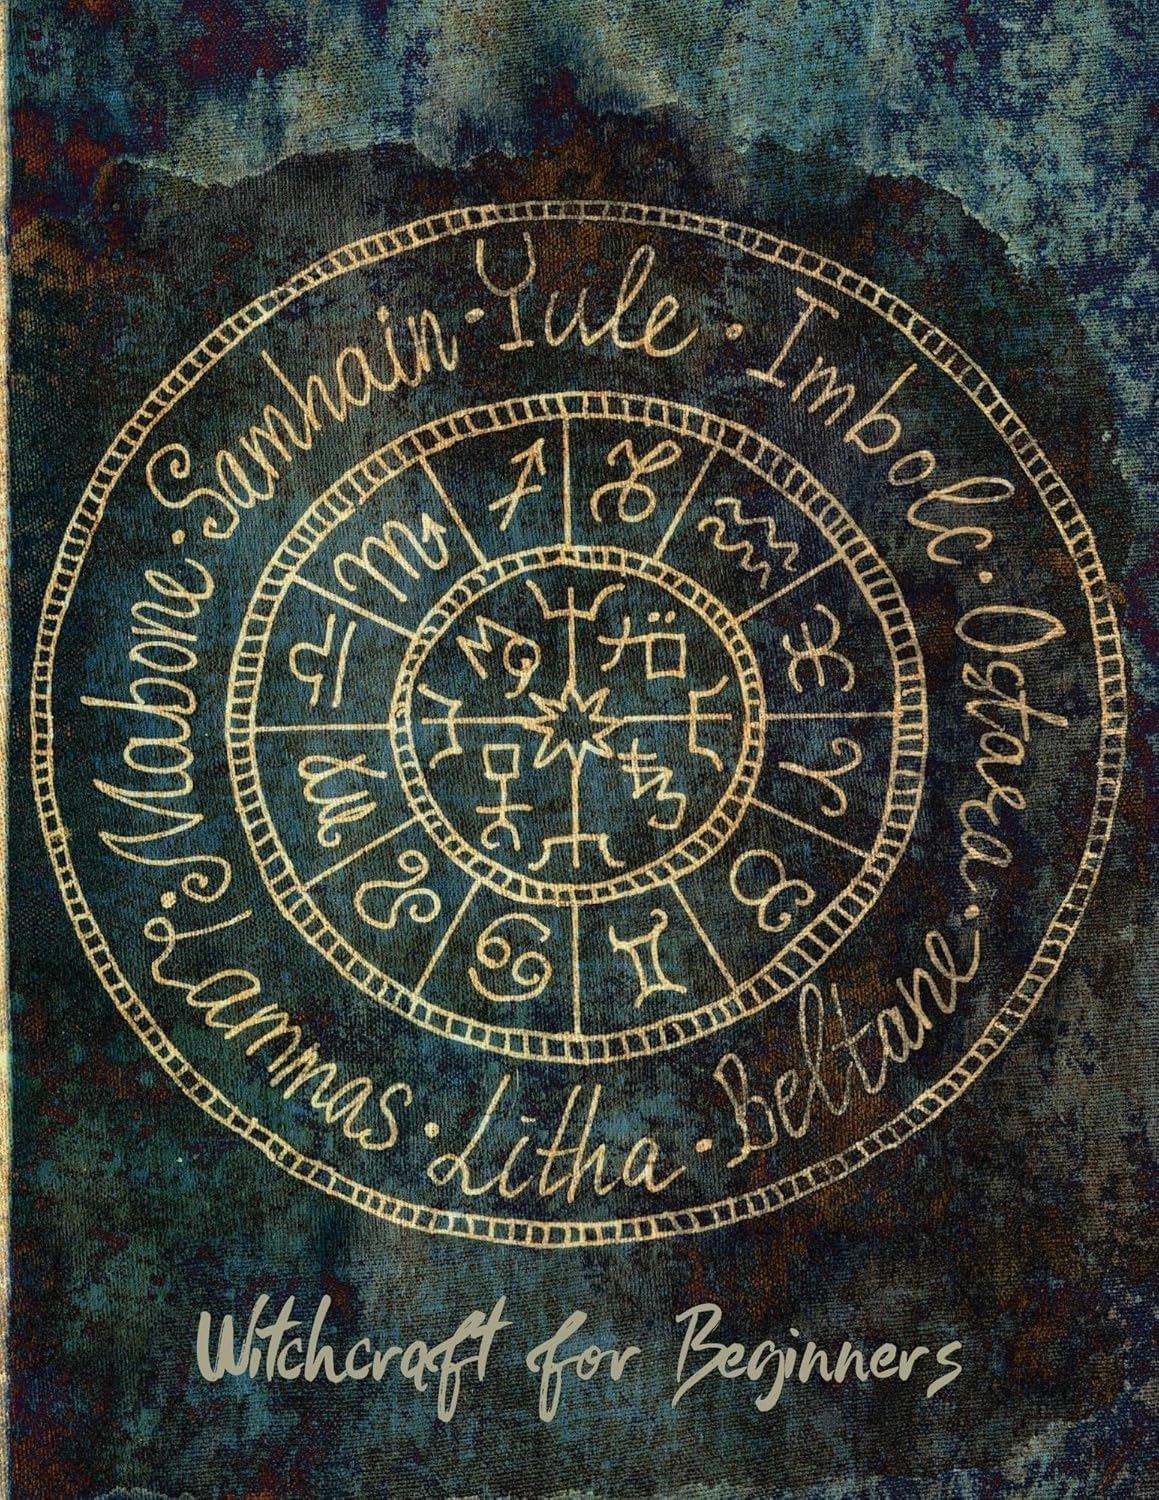 Yule · Imbolc · Ostara · Beltane · Litha · Lammas · Mabone · Samhain ·
Witchcraft for Beginners